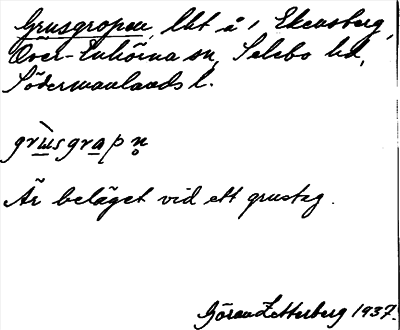 Grusgropen, lht å 1 Ekensberg,
Över-Enhörna sn, Selebo hd,
Södermanlands l.
grùsgrapn̥
Är beläget vid ett grustag.
Göran Zetterberg 1937.